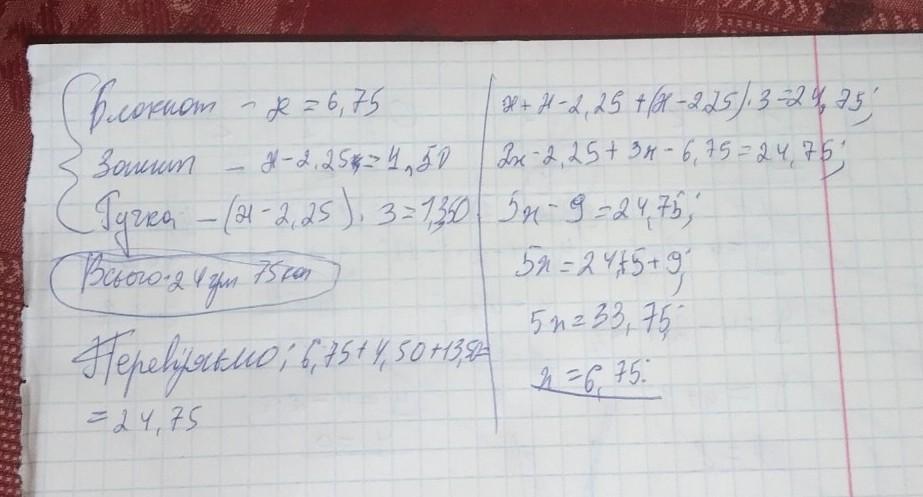 Блокнот - x = 6,75
Зошит - x-2,25 = 4,50
Ручка - (x-2,25) . 3 = 13,50
Всього - 24 грн 75 коп
Перевіряємо; 6,75 + 4,50 + 13,50 =
= 24,75
x + x - 2,25 + (x - 2,25) . 3 = 24,75;
2x - 2,25 + 3x - 6,75 = 24,75;
5x - 9 = 24,75;
5x = 24,75 + 9;
5x = 33,75;
x = 6,75.